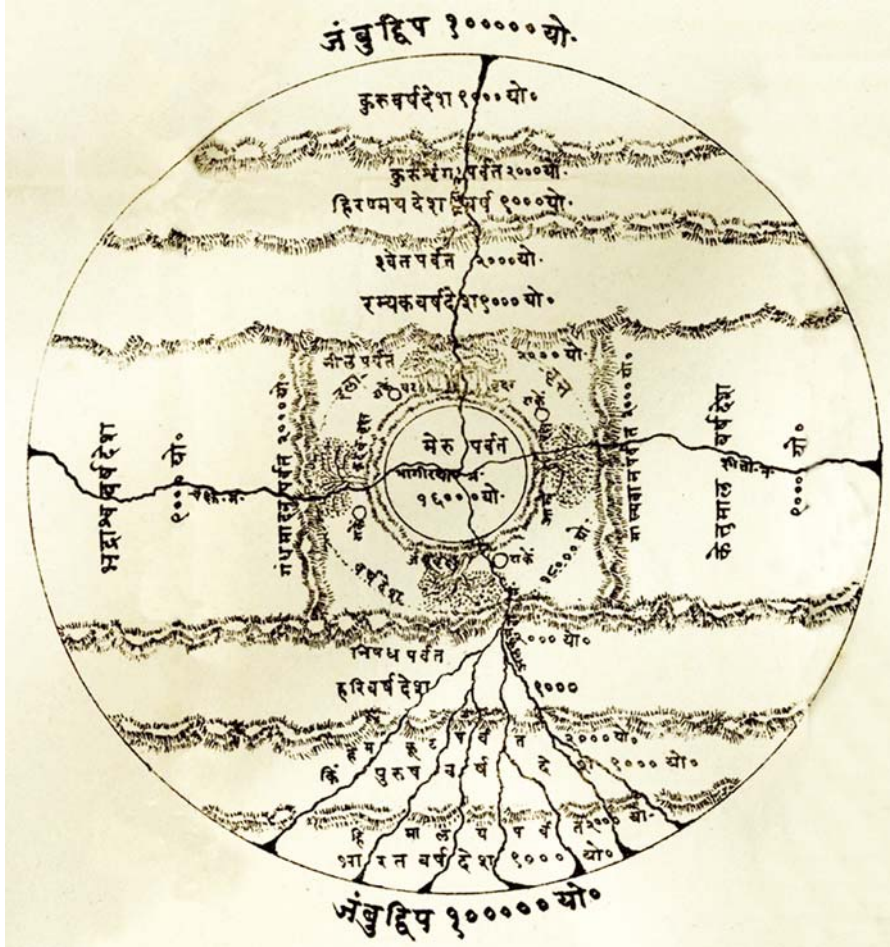 जंबुद्विप १००००० यो.
कुरुवर्षदेश ९००० यो०
पर्वत २००० यो.
हिरण्मयदेश वर्ष ९००० यो.
श्वेतपर्वत २००० यो.
रम्यकवर्षदेश ९००० यो०
नीलपर्वत २००० यो.
भद्राश्व वर्षदेश
९००० यो०
गंधमादनपर्वत २००० यो.
मेरु पर्वत
१६००० यो.
माल्यवानपर्वत २००० यो.
केतुमाल वर्षदेश
९००० यो०
वर्षदेश
निषधपर्वत २००० यो०
हरिवर्षदेश ९०००
हेमकूटपर्वत २००० यो.
किंपुरुषवर्षदेश ९००० यो०
हिमालयपर्वत २००० यो.
भारतवर्षदेश ९००० यो०
जंबुद्विप १००००० यो०